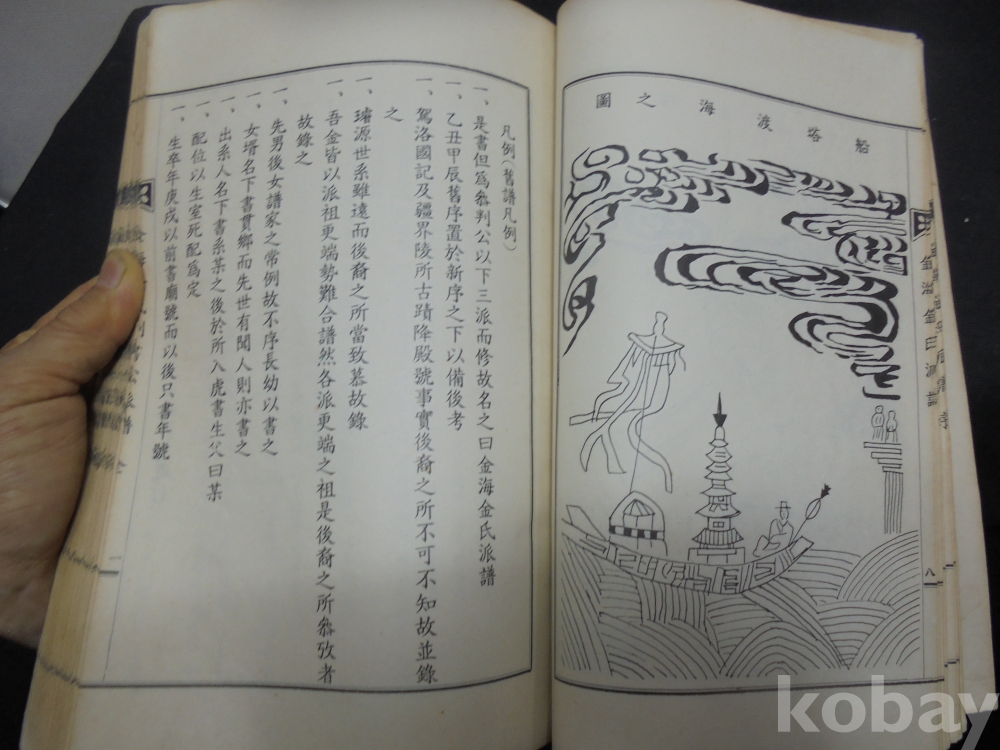 船客渡海之圖
金海金氏派譜
八
凡例(舊譜凡例)
一、是書但爲參判公以下三派而修故名之曰金海金氏派譜
一、乙丑甲辰舊序置於新序之下以備後考
一、駕洛國記及疆界陵所古蹟降殿號事實後裔之所不可不知故並錄
之
一、璿源世系雖遠而後裔之所當致慕故錄
一、吾金皆以派祖更端勢難合譜然各派更端之祖是後裔之所參攷者
故錄之
一、先男後女譜家之常例故不序長幼以書之
一、女壻名下書貫鄕而先世有聞人則亦書之
一、出系人名下書系某之後於所入處書生父曰某
一、配位以生室死配爲定
一、生卒年庚戌以前書廟號而以後只書年號
kobay